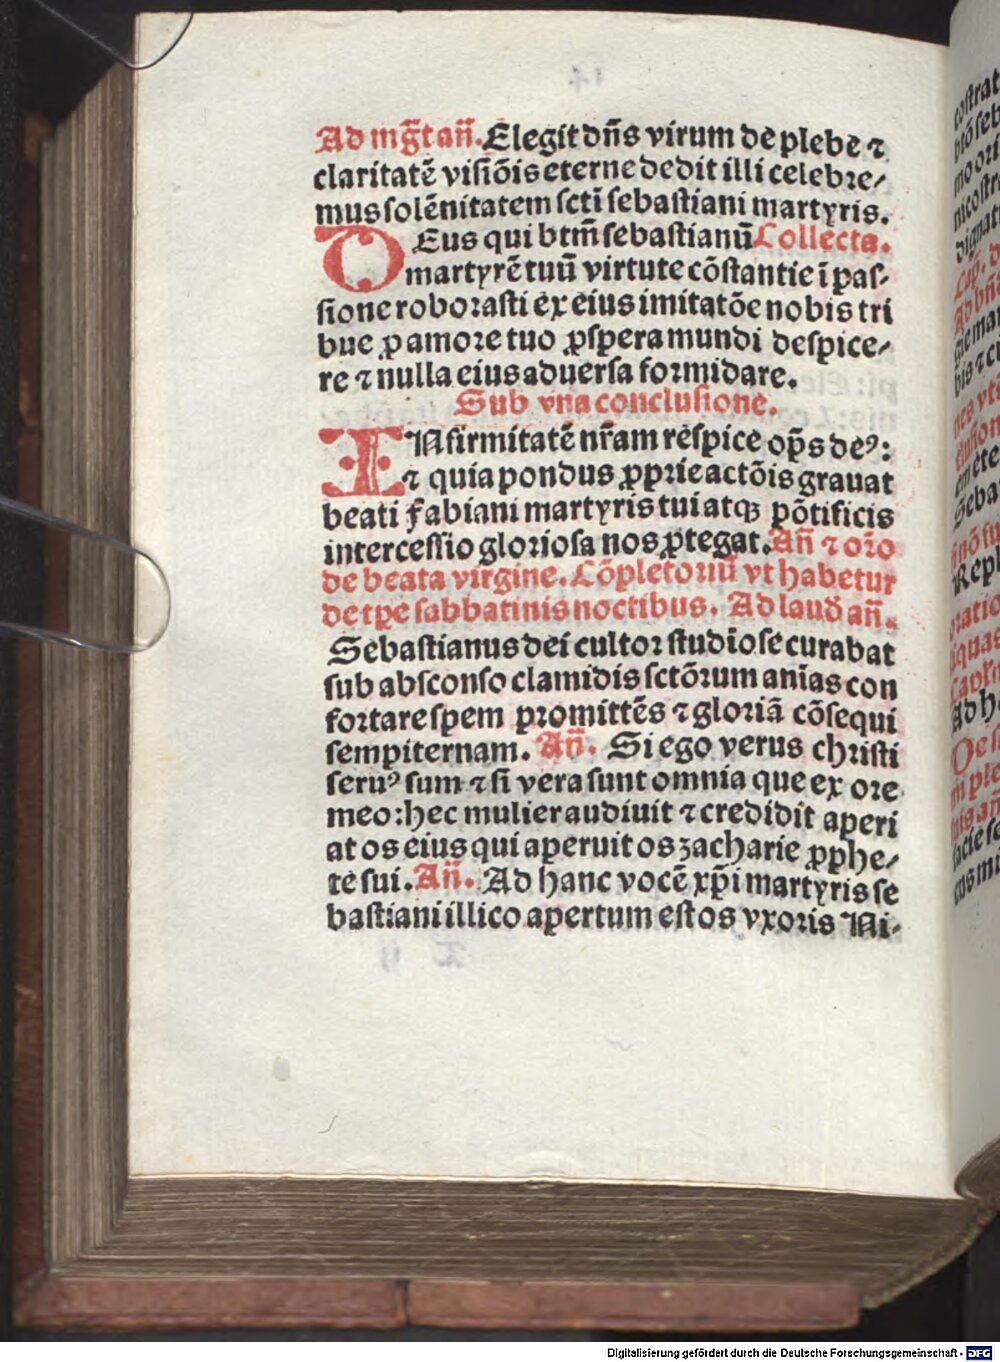 Ad mg̅t an̅. Elegit dn̅s virum de plebe ⁊
claritatē visiōis eterne dedit illi celebre⸗
mus solēnitatem sct̅i sebastiani martyris.
DEus qui btm̅ sebastianū Collecta.
martyrē tuū virtute cōstantie ī pas⸗
sione roborasti ex eius imitatōe nobis tri
bue ꝓ amore tuo ꝓspera mundi despice⸗
re ⁊ nulla eius aduersa formidare.
Sub vna conclusione.
INfirmitatē nr̅am respice op̅s deꝰ:
⁊ quia pondus ꝓprie actōis grauat
beati fabiani martyris tui atqꝫ pōtificis
intercessio gloriosa nos ꝓtegat. An̅ ⁊ or̅o
de beata virgine. Cōpletoriū vt habetur
de tp̅e sabbatinis noctibus. Ad laud̅ an̅.
Sebastianus dei cultor studiōse curabat
sub absconso clamidis sctōrum anīas con
fortare spem promittēs ⁊ gloriā cōsequi
sempiternam. An̅. Si ego verus christi
seruꝰ sum ⁊ si vera sunt omnia que ex ore
meo: hec mulier audiuit ⁊ credidit aperi
at os eius qui aperuit os zacharie ꝓphe⸗
te sui. An̅. Ad hanc vocē xp̅i martyris se
bastiani illico apertum est os vxoris Ni⸗
Digitalisierung gefördert durch die Deutsche Forschungsgemeinschaft - DFG